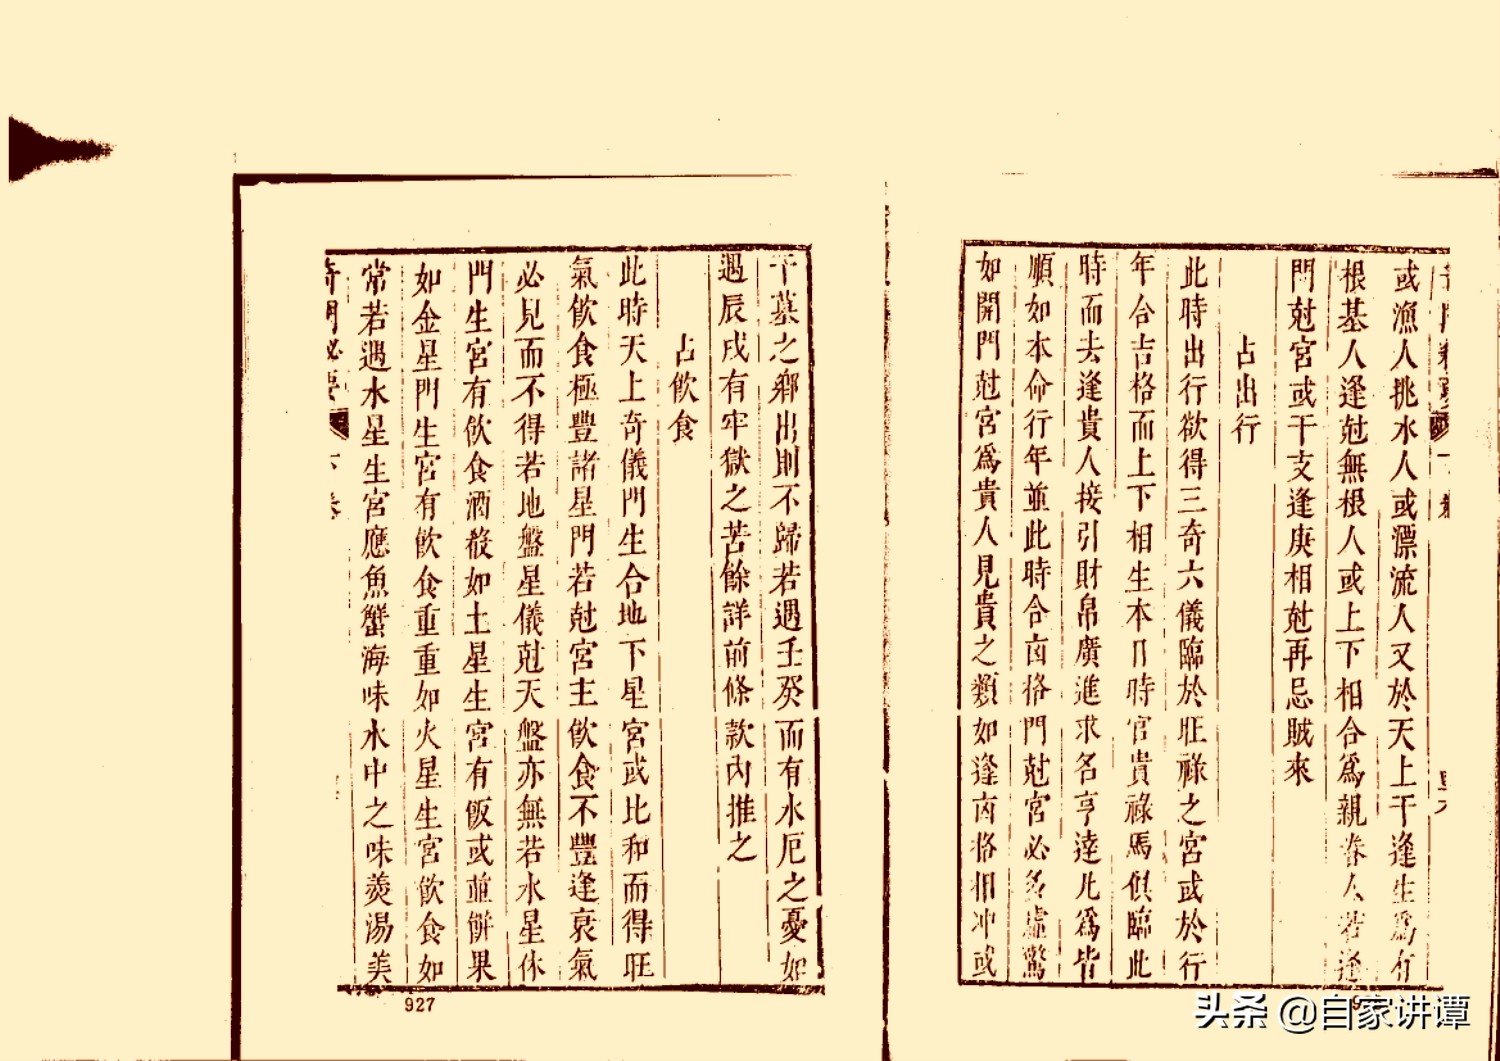 或漁人挑水人或漂流人又於天上干逢生爲有
根基人逢尅無根人或上下相合爲親眷人若逢
門尅宮或干支逢庚相尅再忌賊來
占出行
此時出行欲得三奇六儀臨於旺祿之宮或於行
年合吉格而上下相生本日時官貴祿馬俱臨此
時而去逢貴人接引財帛廣進求名亨達凡爲皆
順如本命行年並此時合凶格門尅宮必多虛驚
如開門尅宮爲貴人見貴之類如逢凶格相冲或
干墓之鄉出則不歸若遇壬癸而有水厄之憂如
遇辰戌有牢獄之苦餘詳前條款內推之
占飲食
此時天上奇儀門生合地下星宮或比和而得旺
氣飲食極豐諸星門若尅宮主飲食不豐逢衰氣
必見而不得若地盤星儀尅天盤亦無若水星休
門生宮有飲食酒殽如土星生宮有飯或並餅果
如金星門生宮有飲食重重如火星生宮飲食如
常若遇水星生宮應魚蟹海味水中之味羹湯美
奇門必要 下卷
927
头条 @自家讲谭